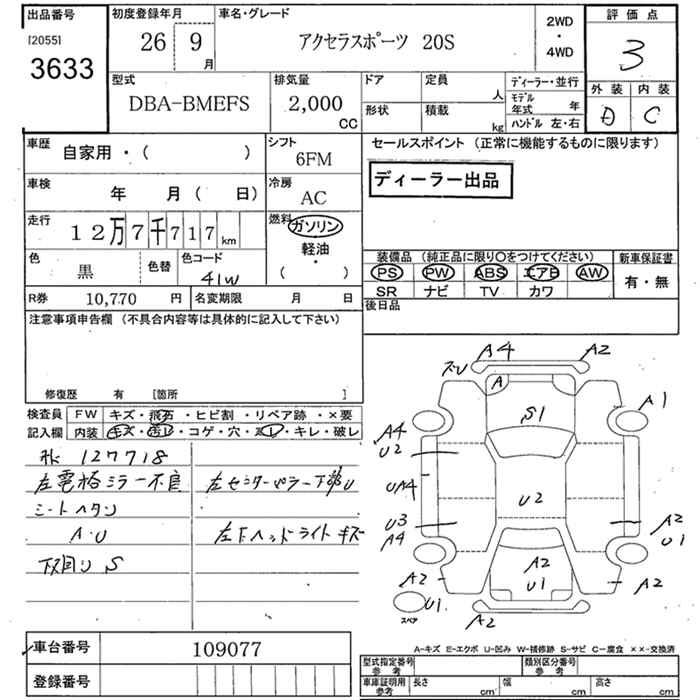 出品番号
[2055]
3633
初度登録年月
26 9
月
車名・グレード
アクセラスポーツ 20S
2WD
・
4WD
評価点
3
外装 内装
D C
型式
DBA-BMEFS
排気量
2,000
CC
ドア
定員
人
形状
積載
kg
ディーラー・並行
モデル
年式 年
ハンドル 左・右
車歴
自家用・( )
シフト
6FM
車検
年 月( 日)
冷房
AC
走行
12万7千717km
燃料
ガソリン
軽油・
( )
色
黒
色替
色コード
41W
R券 10,770 円
名変期限 月 日
セールスポイント (正常に機能するものに限ります)
ディーラー出品
装備品 (純正品に限り〇をつけてください)
新車保証書
PS PW ABS エアB AW
SR ナビ TV カワ
有・無
後日品
注意事項申告欄 (不具合内容等は具体的に記入して下さい)
修復歴 有 [箇所 ]
検査員
記入欄
FW キズ・飛石・ヒビ割・リペア跡・×要
内装 キズ・汚レ・コゲ・穴・スレ・キレ・破レ
127718
左電格ミラー不良
シートヘタリ
A・U
下回り S
左センターピラー下部U
左下ヘッドライトキズ
A4
A2
スリ
A
S1
A1
A4
U2
UA4
U2
U3
A4
A2
U1
A2
A2
U1
A2
U1
スペア
A2
A-キズ E-エクボ U-凹み W-補修跡 S-サビ C-腐食 ××-交換済
車台番号 109077
登録番号
型式指定番号
参考
類別区分番号
参考
車庫証明用
参考
長さ cm
幅 cm
高さ cm